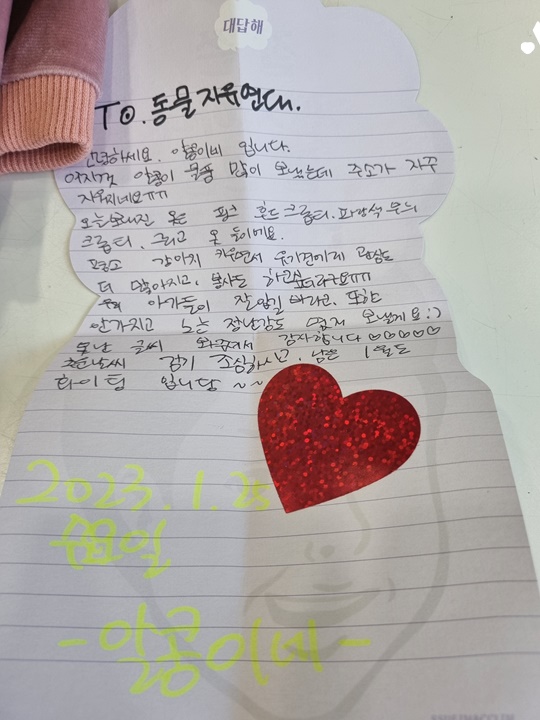 대답해
TO. 동물자유연대.
안녕하세요. 알콩이네 입니다.
여지껏 알콩이 물품 많이 보냈는데 주소가 자꾸
지워지네요ㅠㅠ
오늘 보내진 옷은 핑크 후드 크롭티, 파랑색 무늬
크롭티, 그리고 옷 들이에요.
평소 강아지 키우면서 유기견에게 관심도
더 많아지고, 봉사도 하고싶더라구요ㅠㅠ
아가들이 잘 입길 바라고, 또한
안가지고 노는 장난감도 보낼게요 :)
못난 글씨 봐주셔서 감사합니다 ♡♡♡♡♡
추운날씨 감기 조심하시고, 남은 1월도
화이팅 입니당 ~~
2023.1.25
수요일
-알콩이네-